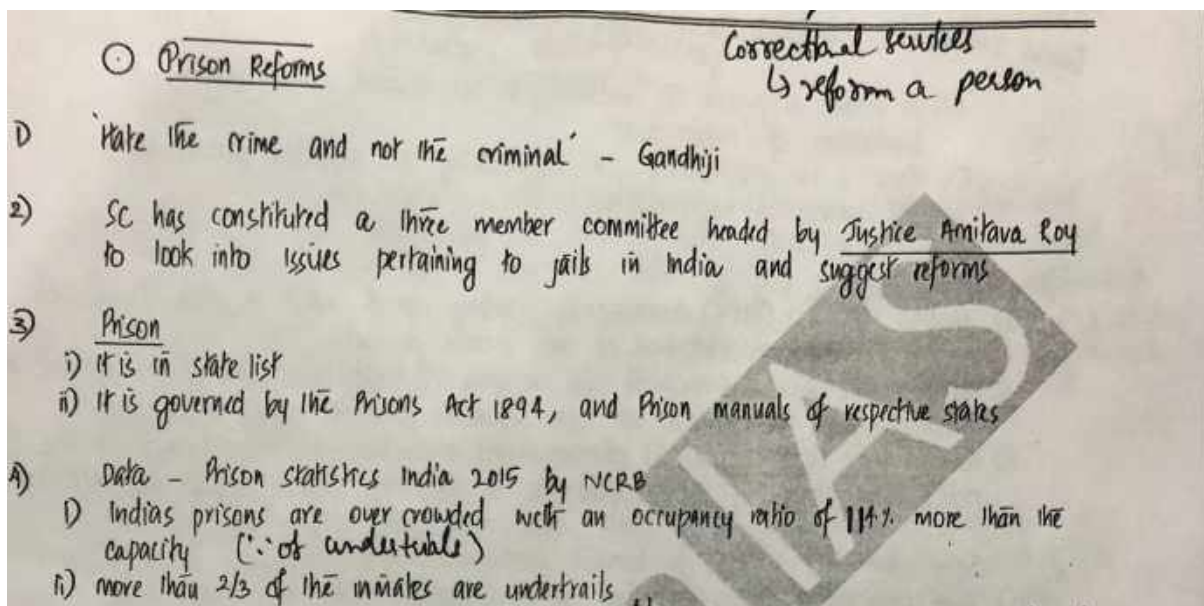 Correctional services
↳ reform a person
⊙ Prison Reforms
1) 'Hate the crime and not the criminal' - Gandhiji
2) SC has constituted a three member committee headed by Justice Amitava Roy
to look into issues pertaining to jails in India and suggest reforms
3) Prison
i) It is in state list
ii) It is governed by the Prisons Act 1894, and Prison manuals of respective states
4) Data - Prison statistics India 2015 by NCRB
i) Indias prisons are over crowded with an occupancy ratio of 114% more than the
capacity (∵ of undertrials)
ii) more than 2/3 of the inmates are undertrails
IAS